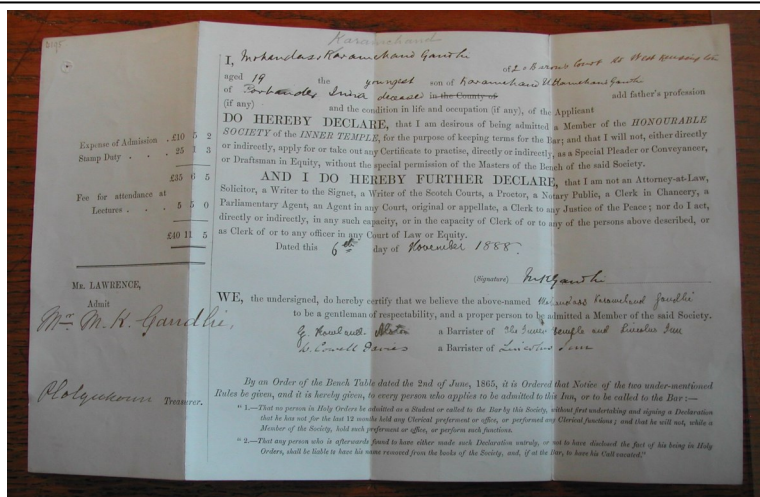 Karamchand
I, Mohandas Karamchand Gandhi of 20 Baron's Court Rd West Kensington
aged 19 the youngest son of Karamchand Uttamchand Gandhi
of Porbander India deceased in the County of add father's profession
(if any) and the condition in life and occupation (if any), of the Applicant
DO HEREBY DECLARE, that I am desirous of being admitted a Member of the HONOURABLE
SOCIETY of the INNER TEMPLE, for the purpose of keeping terms for the Bar; and that I will not, either directly
or indirectly, apply for or take out any Certificate to practise, directly or indirectly, as a Special Pleader or Conveyancer,
or Draftsman in Equity, without the special permission of the Masters of the Bench of the said Society.
AND I DO HEREBY FURTHER DECLARE, that I am not an Attorney-at-Law,
Solicitor, a Writer to the Signet, a Writer of the Scotch Courts, a Proctor, a Notary Public, a Clerk in Chancery, a
Parliamentary Agent, an Agent in any Court, original or appellate, a Clerk to any Justice of the Peace; nor do I act,
directly or indirectly, in any such capacity, or in the capacity of Clerk of or to any of the persons above described, or
as Clerk of or to any officer in any Court of Law or Equity.
Dated this 6th day of November 1888.
(Signature) MKGandhi
WE, the undersigned, do hereby certify that we believe the above-named Mohandass Karamchand Gandhi
to be a gentleman of respectability, and a proper person to be admitted a Member of the said Society.
G. Rowland a Barrister of The Inner Temple and Lincolns Inn
Lowell Davies a Barrister of Lincolns Inn
By an Order of the Bench Table dated the 2nd of June, 1865, it is Ordered that Notice of the two under-mentioned
Rules be given, and it is hereby given, to every person who applies to be admitted to this Inn, or to be called to the Bar:—
"1.—That no person in Holy Orders be admitted as a Student or called to the Bar by this Society, without first undertaking and signing a Declaration
that he has not for the last 12 months held any Clerical preferment or office, or performed any Clerical functions; and that he will not, while a
Member of the Society, hold such preferment or office, or perform such functions.
"2.—That any person who is afterwards found to have either made such Declaration untruly, or not to have disclosed the fact of his being in Holy
Orders, shall be liable to have his name removed from the books of the Society, and, if at the Bar, to have his Call vacated."
Expense of Admission . £10 5 2
Stamp Duty . . . 25 1 3
£35 6 5
Fee for attendance at
Lectures . . . 5 5 0
£40 11 5
MR. LAWRENCE,
Admit
Mr M. K. Gandhi,
Treasurer.